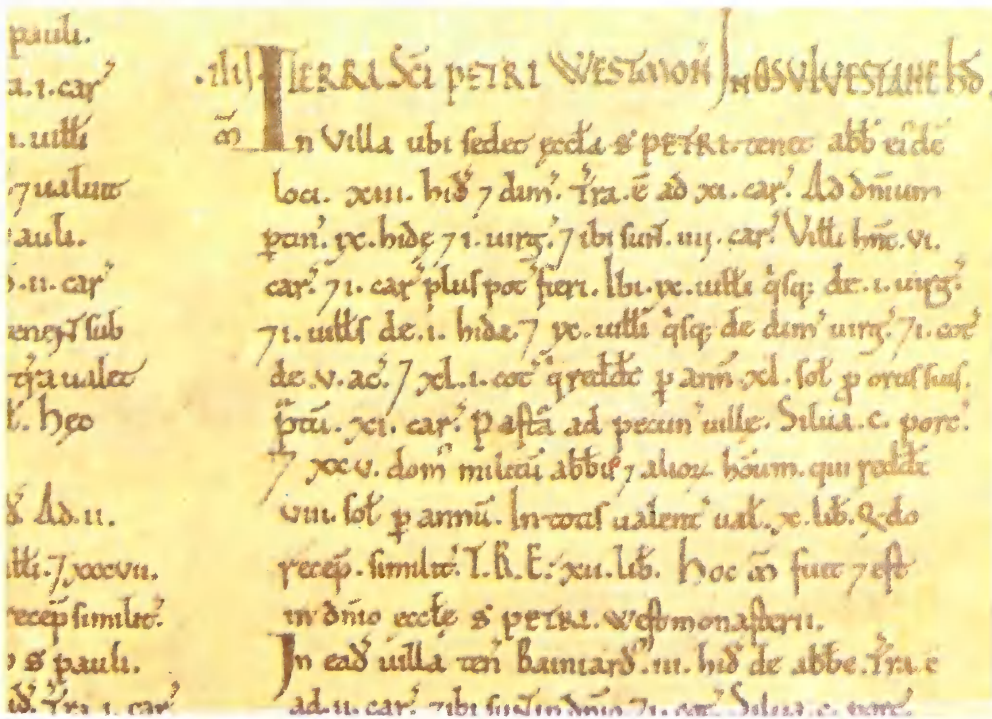 pauli.
a. i. car̃
i. uitti
⁊ ualuit
auli.
. ii. car̃
sub
ualet
heo
Ad. ii.
⁊ xxxvii.
recep̃ similit̃.
s̃ pauli.
t̃ra i. car̃
.iiii. TERRA SC̃I PETRI WESTMON̄ IN OSVLVESTANE HD̃.
m̃ In Villa ubi sedet æccl̃a s̃ PETRI. tenet abb̃ eiꝰdē
loci. xiii. hid̃ ⁊ dim̃. T̃ra. ē ad xi. car̃. Ad dn̄ium
p̱tin̄. ix. hidę ⁊ i. uirg̃. ⁊ ibi sun̄t. iiij. car̃. Vitt̃i hn̄t. vi.
car̃. ⁊ i. car̃ plus pot̃ fieri. Ibi. ix. uitt̃i q̇sq; de. i. uirg̃.
⁊ i. uitt̃s de. i. hida. ⁊ ix. uitt̃i q̇sq; de dim̃ uirg̃. ⁊ i. cot̃
de. v. ac̃. ⁊ xl. i. cot̃ q̇ reddt̃ p̱ ann̄ xl. sot̃ ꝓ ortis suis.
p̃tū. xi. car̃. Pastā ad pecun̄ uillę. Silua. c. porc̃.
⁊ xxv. dom̃ militū abb̃is ⁊ alioꝝ hōum. qui reddt̃
viii. sot̃ p̱ annū. In totis ualent̃ uat̃. x. lib̃. Q̃do
recep̃. similit̃. T.R.E: xii. lib̃. Hoc m̃ fuit ⁊ est
in dn̄io eccl̃ę s̃ PETRI. westmonasterii.
In ead̃ uilla ten̄ Bainiard̃ꝰ. iii. hid̃ de abb̃e. T̃ra. ē
ad. ii. car̃. ⁊ ibi sun̄t in dn̄io ⁊ i. cot̃. Silua. c. porc̃.